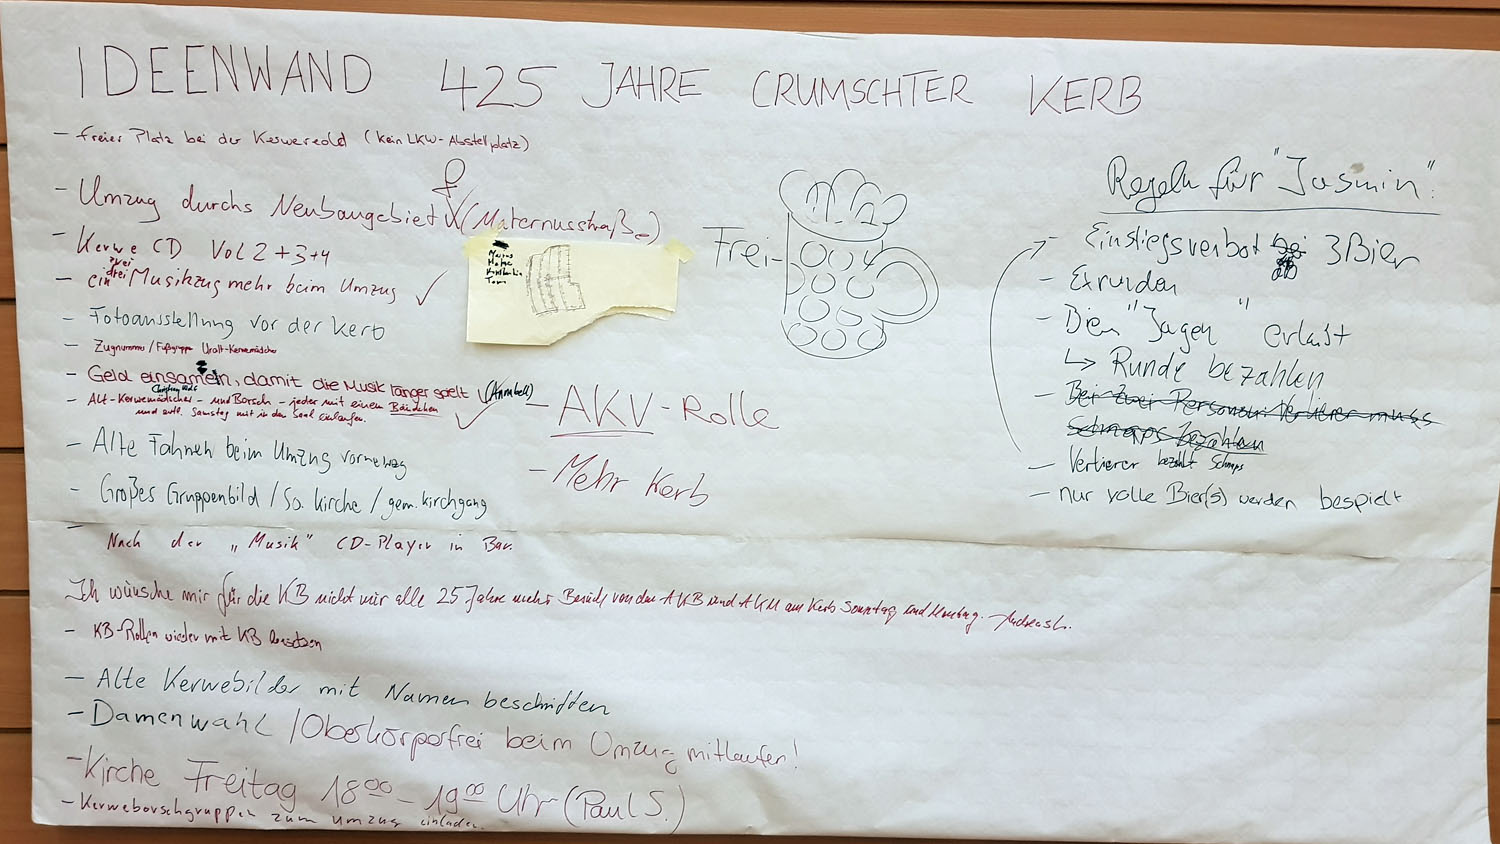 IDEENWAND 425 JAHRE CRUMSCHTER KERB
- freier Platz bei der (kein LKW-Abstellplatz)
- Umzug durchs Neubaugebiet (Maternusstraße)
- Kerwe CD Vol 2 + 3 + 4
zwei
drei
- ein Musikzug mehr beim Umzug ✓
- Fotoausstellung vor der Kerb
- Zugnummer / Fußgruppe Uralt-Kerwemädcher
- Geld einsameln, damit die Musik länger spielt ✓ (Annabell)
- Alt-Kerwemädscher - und Borsch - jeder mit einem Bändchen
und evtl. Samstag mit in den Saal einlaufen. ✓
- Alte Fahnen beim Umzug vorneweg
- Großes Gruppenbild / So. Kirche / gem. Kirchgang
- Nach der „Musik" CD-Player in Bar.
Ich wünsche mir für die KB nicht nur alle 25 Jahre mehr Besuch von der AKB und AKM am Kerb Sonntag und Montag. - Andreas L.
- KB-Rollen wieder mit KB besetzen
- Alte Kerwebilder mit Namen beschriften
- Damenwahl / Oberkörperfrei beim Umzug mitlaufen!
- Kirche Freitag 18⁰⁰ - 19⁰⁰ Uhr (Paul S.)
- Kerweborschgruppen zum Umzug einladen.
Tom
Frei-
- AKV-Rolle
- Mehr Kerb
Regeln für "Jasmin":
- Einstiegsverbot ab 3 Bier
- Exrunden
- Bier "Jagen" erlaubt
↳ Runde bezahlen
Bei zwei Personen: Verlierer muss
Schnaps bezahlen
- Verlierer bezahlt Schnaps
- nur volle Bier(s) werden bespielt